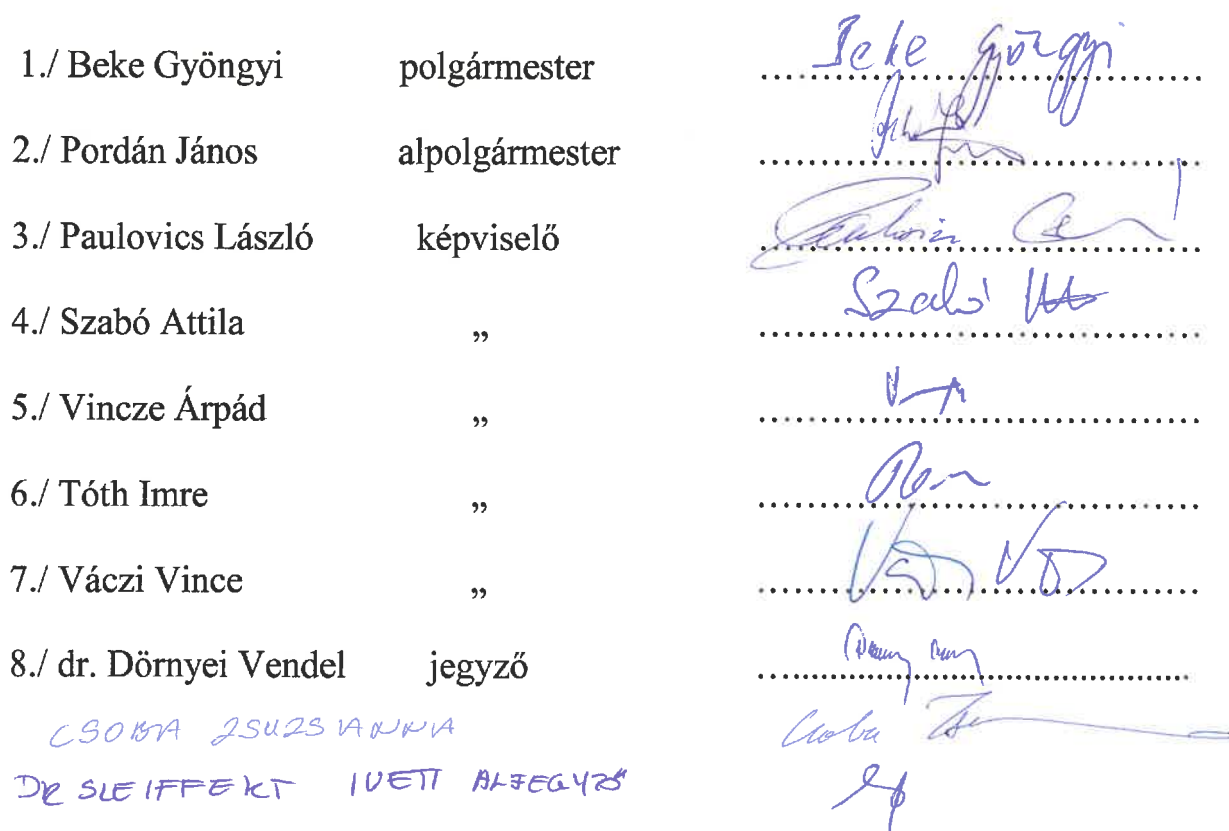 1./ Beke Gyöngyi polgármester Beke Gyöngyi
2./ Pordán János alpolgármester
3./ Paulovics László képviselő
4./ Szabó Attila „ Szabó
5./ Vincze Árpád „
6./ Tóth Imre „
7./ Váczi Vince „
8./ dr. Dörnyei Vendel jegyző
CSOBA ZSUZSIANNA Csoba
DR SLEIFFEKT IVETT ALJEGYZŐ